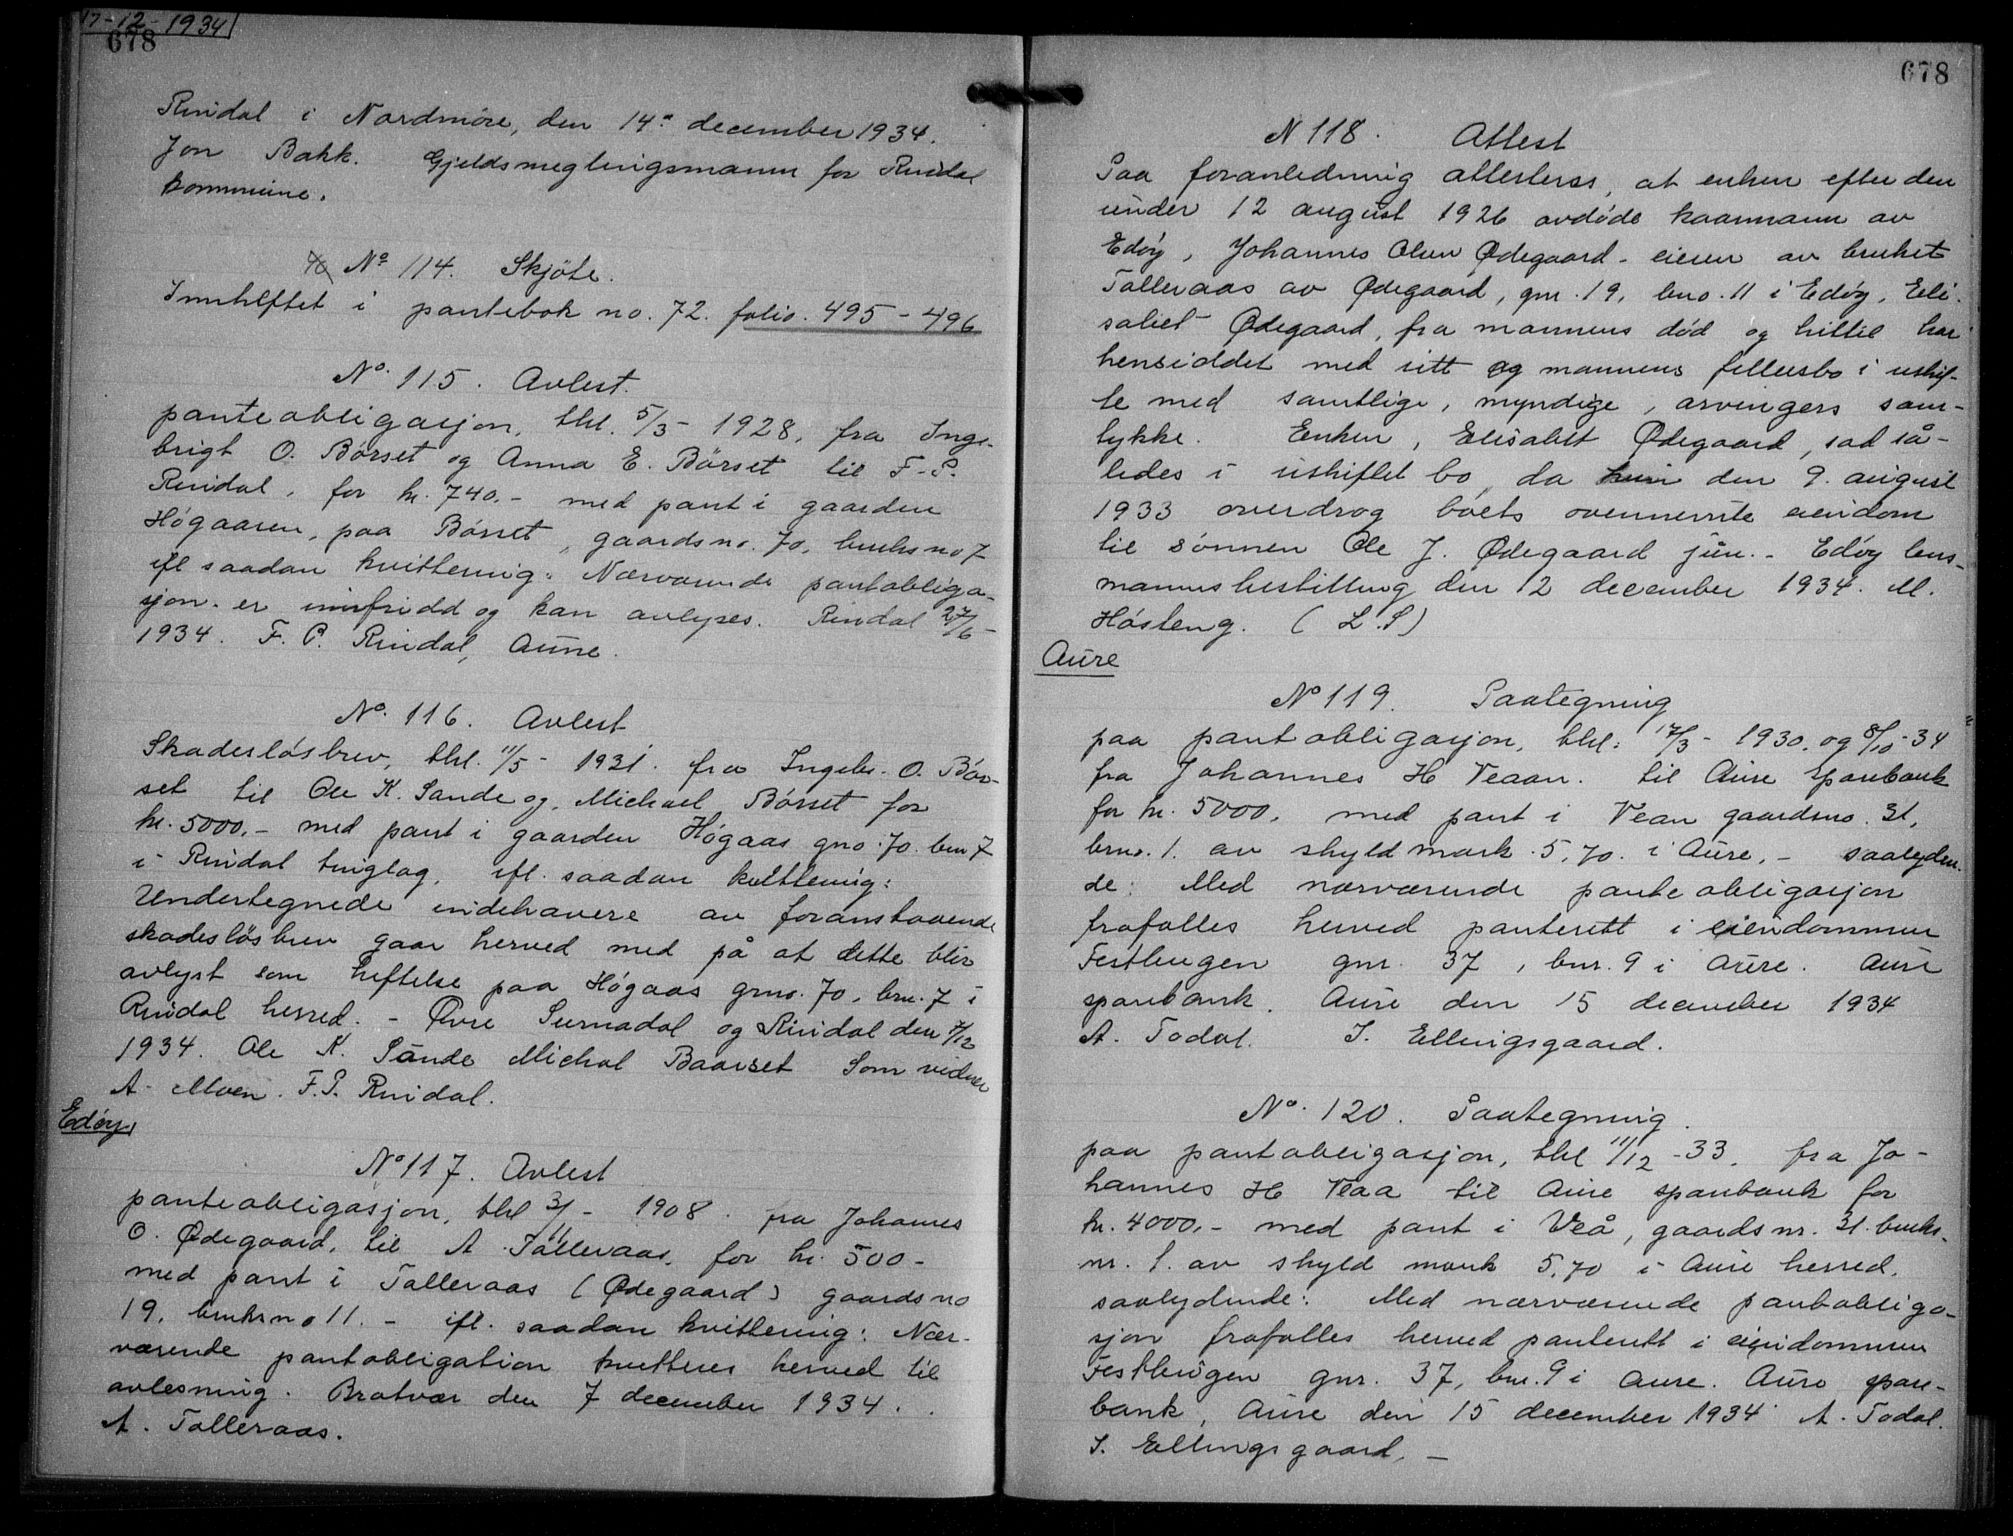 17-12-1934
678
Rindal i Nordmøre, den 14de december 1934.
Jon Bakk. Gjeldsmeglingsmann for Rindal
kommune.
No 114. Skjöte.
Innheftet i pantebok no. 72. folio. 495-496
No. 115. Avlest.
panteobligasjon, thl. 5/3- 1928, fra Inge-
brigt O. Börset og Anna E. Börset til F. P.
Rindal, for kr. 740.- med pant i gaarden
Högaaren, paa Börset, gaardsno. 70, bruksno 7
ifl saadan kvittering: Nærværende pantobliga-
sjon. er innfridd og kan avlyses. Rindal 27/6-
1934. F. P. Rindal, Aune.
No. 116. Avlest
Skadeslösbrev, thl. 11/5- 1931. fra Ingebr. O. Bör-
set til Ole K. Sande og Michael Börset for
kr. 5000.- med pant i gaarden Högaas gno. 70. brn 7
i Rindal tinglag, ifl. saadan kvittering:
Undertegnede indehavere av foranstaaende
skadeslösbrev gaar herved med på at dette blir
avlyst som heftelse paa Högaas grno. 70, brn. 7 i
Rindal herred. - Øvre Surnadal og Rindal den 7/12
1934. Ole K. Sande Michal Baarset Som vidner
A. Moen. F. P. Rindal.
Edöy
No 117. Avlest
panteobligasjon, thl 3/11- 1908. fra Johannes
O. Ødegaard, til A. Talleraas, for kr. 500-
med pant i Talleraas (Ødegaard) gaardsno
19, bruksno 11. - ifl. saadan kvittering: Nær-
værende pantobligation kvitteres herved til
avlesning. Bratvær den 7 december 1934.
A. Talleraas.
678
N 118. Attest
Paa foranledning attesteres, at enken efter den
under 12 august 1926 avdöde kaarmann av
Edöy, Johannes Olsen Ødegaard - eieren av bruket
Talleraas av Ødegaard, gnr. 19, bno. 11 i Edöy, Eli-
sabet Ødegaard, fra mannens död og hittil har
hensiddet med sitt og mannens fellesbo i uskif-
te med samtlige, myndige, arvingers sam-
tykke. Enken, Elisabet Ødegaard, sad så-
ledes i uskiftet bo, da hun den 9. august
1933 overdrog boets ovennevnte eiendom
til sönnen Ole J. Ødegaard jun. - Edöy lens-
mannsbestilling den 12 december 1934. M.
Hösteng. (L.S)
Aure
No 119. Paategning
paa pantobligasjon, thl: 17/3- 1930. og 8/10-34
fra Johannes H Veaan. til Aure sparebank
for kr. 5000, med pant i Vean gaardsno. 31,
brno. 1. av skyld mark 5,70. i Aure, - saalyden-
de: Med nærværende panteobligasjon
frafalles herved panterett i eiendommen
Festhugen gnr. 37, bnr. 9 i Aure. Aure
sparebank. Aure den 15 december 1934
A. Todal. I. Ellingsgaard.
No. 120. Paategning.
paa pantobligasjon, thl 11/12-33. fra Jo-
hannes H Veaa til Aure sparebank for
kr. 4000.- med pant i Veå, gaardsnr. 31. bruks-
nr. 1. av skyld mark 5,70 i Aure herred.
saalydende: Med nærværende pantobliga-
sjon frafalles herved panterett i eiendommen
Festhugen gnr. 37, bnr. 9 i Aure. Aure spare-
bank, Aure den 15 december 1934 A. Todal.
I. Ellingsgaard. -